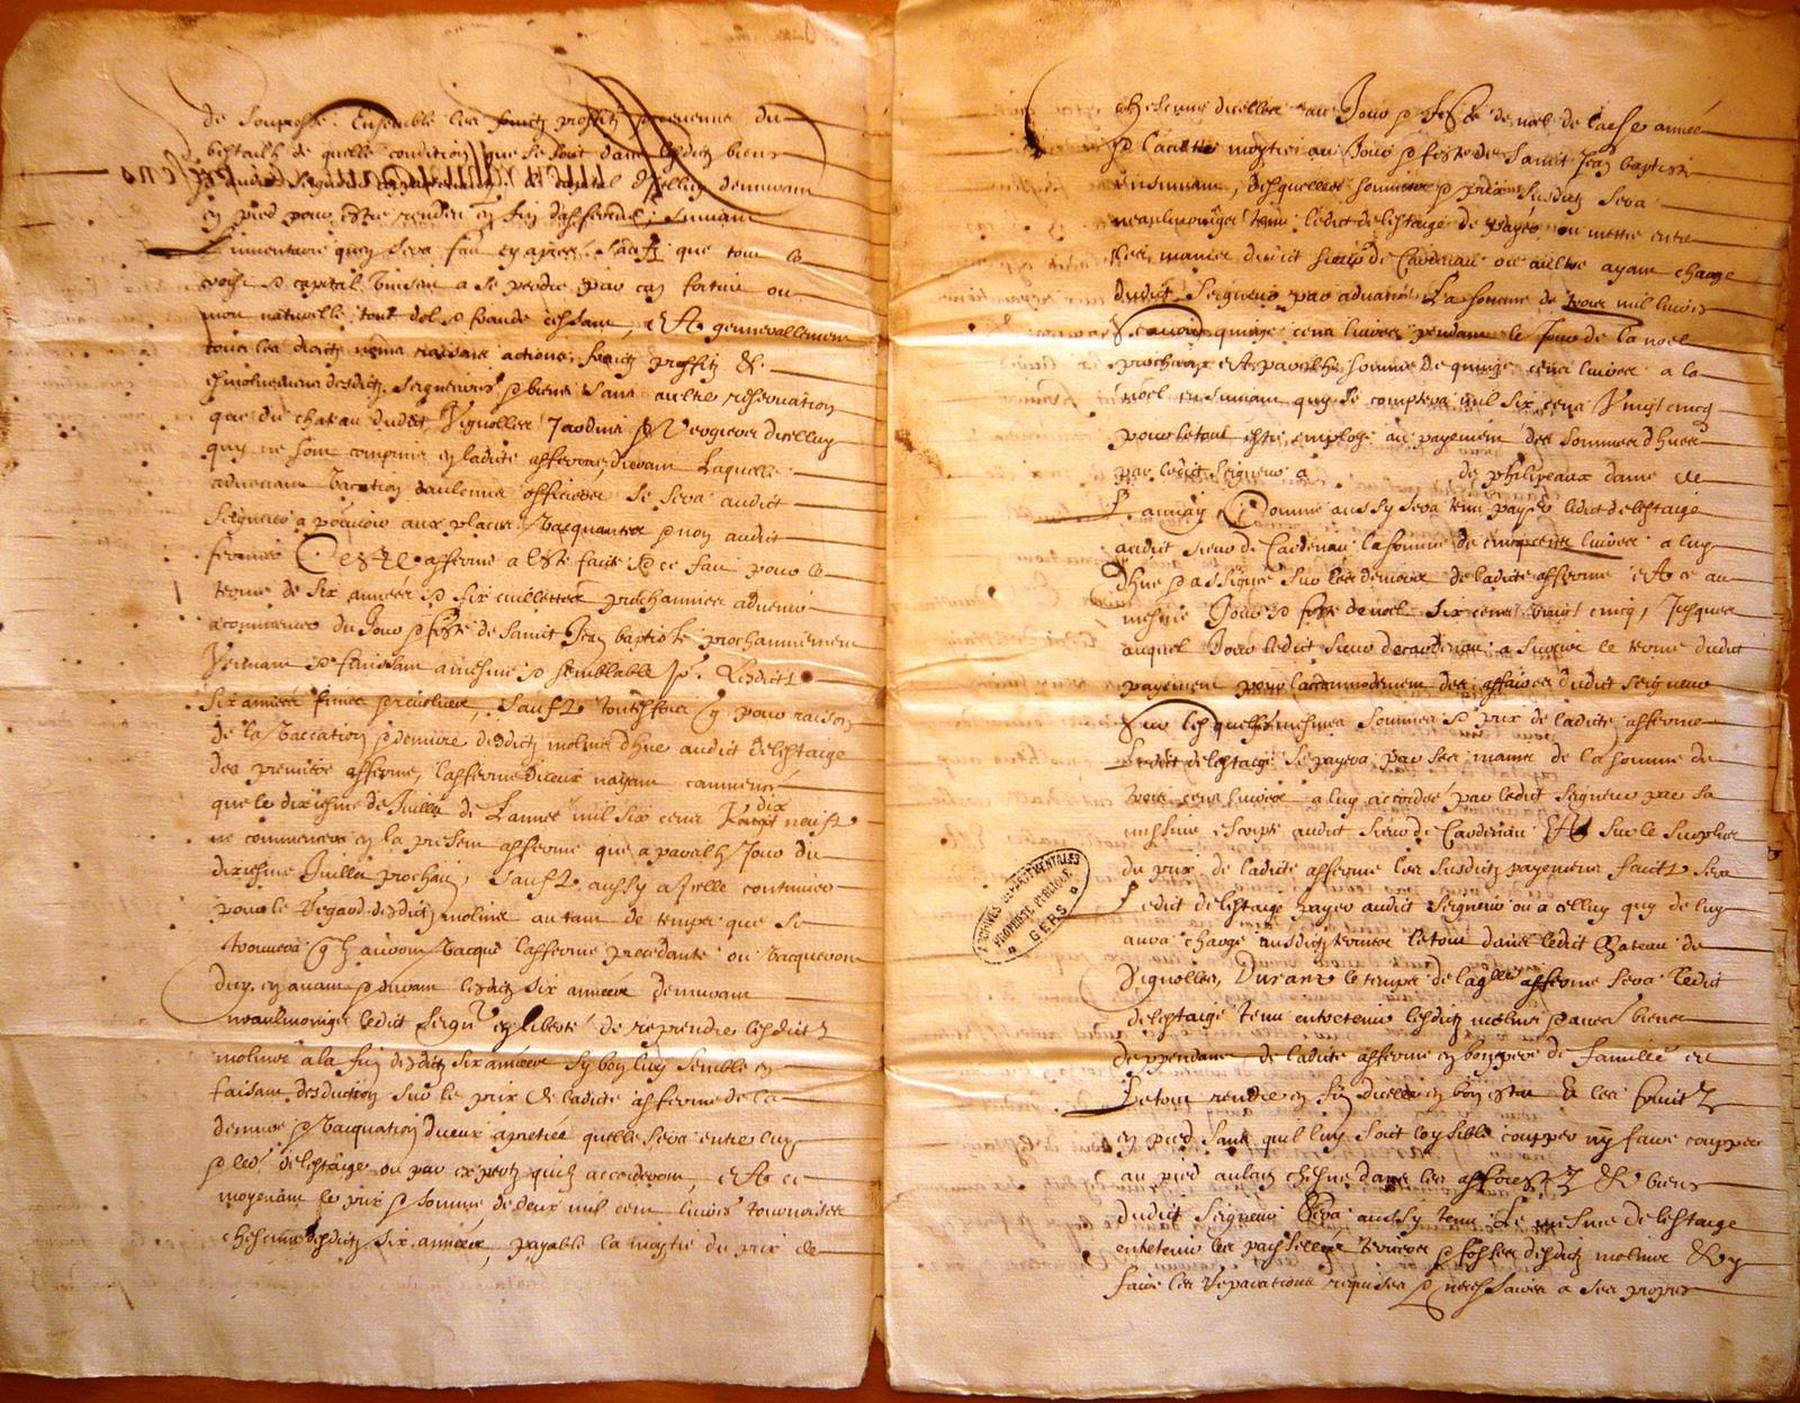 de Ensemble les fruictz proffitz du
bestailh de quelle condition que se soit dans lesdictz biens
audict Seigneur
en pied pour estre rendeu en fin d'afferme, suivant
L'inventaire quy sera faict cy apres. que tout le
capital vinsan a se perdre par cas fortuit ou
mort naturelle tout dol & fraude cessant, Et gennerallement
tous les droictz noms raisons actions fruictz proffitz &
esmolumens desdictz Seigneuries & biens sans aultre reservation
que du chateau dudict Vignolles Jardins & Vergiers dicelluy
quy ne sont comprins en ladicte afferme, durant Laquelle
advenant vacation daulcuns officiers se sera audict
Seigneur a pourvoir aux places vacquantes & non audict
fermier Ceste afferme a esté faicte & ce faict pour le
terme de six années & six cuillettes prochaines
a commencer du Jour & feste de Sainct Jean baptiste prochainement
Venant & finissan a mesme & semblable Jour Lesdictes
six années finies & revolues, sauf toutesfois pour raison
de la vaccation & demeure desdictz molins dhue audict delestaige
des premiere afferme, lafferme diceux nayant commencé
que le dixiesme de Juillet de Lannee mil six cens dix neuf
ne commencera en la presente afferme que a pareilh Jour du
dixiesme Juillet prochain, sauf aussy a Icelle continuer
pour le Regard desdictz molins autant de temps que se
trouvera avoir vacqué lafferme precedante ou vacqueront
durant lesdictz six années demurant
neaulmoingz ledict Seigr en liberté de reprendre lesdictz
molins a la fin desdictz six années sy bon luy semble en
faisant desduction sur le prix de ladicte afferme de la
demure & vacquation diceux quelle sera entre luy
& led. delestaige ou par expertz quilz accorderont, Et ce
moyenant le prix & somme de deux mil cens livres tournoises
chescune desdictz six années, payable la moytie du prix de
chescune dicelles au Jour & feste de noel de lad année
& l'aultre moytie au Jour & feste de Sainct Jean baptiste
ensuivant, desquelles sommes & prix susdictz sera
neaulmoingz tenu ledict delestaige de payer ou mettre entre
les mains dudict sieur de Cardenau ou aultre ayant charge
dudict Seigneur par advance La somme de trois mil livres
Scavoir quinze cens livres pendant le Jour de la noel
prochain Et pareilhe somme de quinze cens livres a la
noel ensuivant quy se comptera mil six cens Vingt cincq
pour le tout estre employé au payement des sommes dhues
par ledict Seigneur a de phelipeaux dame de
Launay Comme aussy sera tenu payer ledict delestaige
audict sieur de Cardenau la somme de cinq cens livres a luy
dhue & assignée sur les deniers de ladicte afferme Et ce au
mesme Jour & feste de noel six cens vingt cincq, Jusques
auquel Jour ledict sieur de cardenau a le terme dudict
payement pour l'accommodement des affaires dudict seigneur
Sur lesquelles mesmes sommes & prix de ladicte afferme
Ledict delestaige se payera par ses mains de la somme de
trois cens livres a luy accordee par ledict Seigneur par sa
missive escripte audict sieur de Cardenau Et sur le surplus
du prix de ladicte afferme les susdictz payemens faictz sera
Ledict delestaige payer audict Seigneur ou a celluy quy de luy
aura charge ausdictz termes le tout dans ledict Chateau de
Vignolles, Durant le temps de laquelle afferme sera ledict
delestaige tenu entretenir lesdictz molins & aultres biens
deppendans de ladicte afferme en bon pere de famille et
Le tout rendre en fin dicelle en bon estat & les fruictz
en pied sans quil luy soit loysible coupper ny faire coupper
au pied aulcun chesne dans les & biens
dudict Seigneur Sera aussy tenu Le mesme delestaige
entretenir les & fosses desdictz molins & y
faire les Reparations requises & necessaires a ses propres
ARCHIVES DEPARTEMENTALES
PROPRIÉTÉ PUBLIQUE
GERS